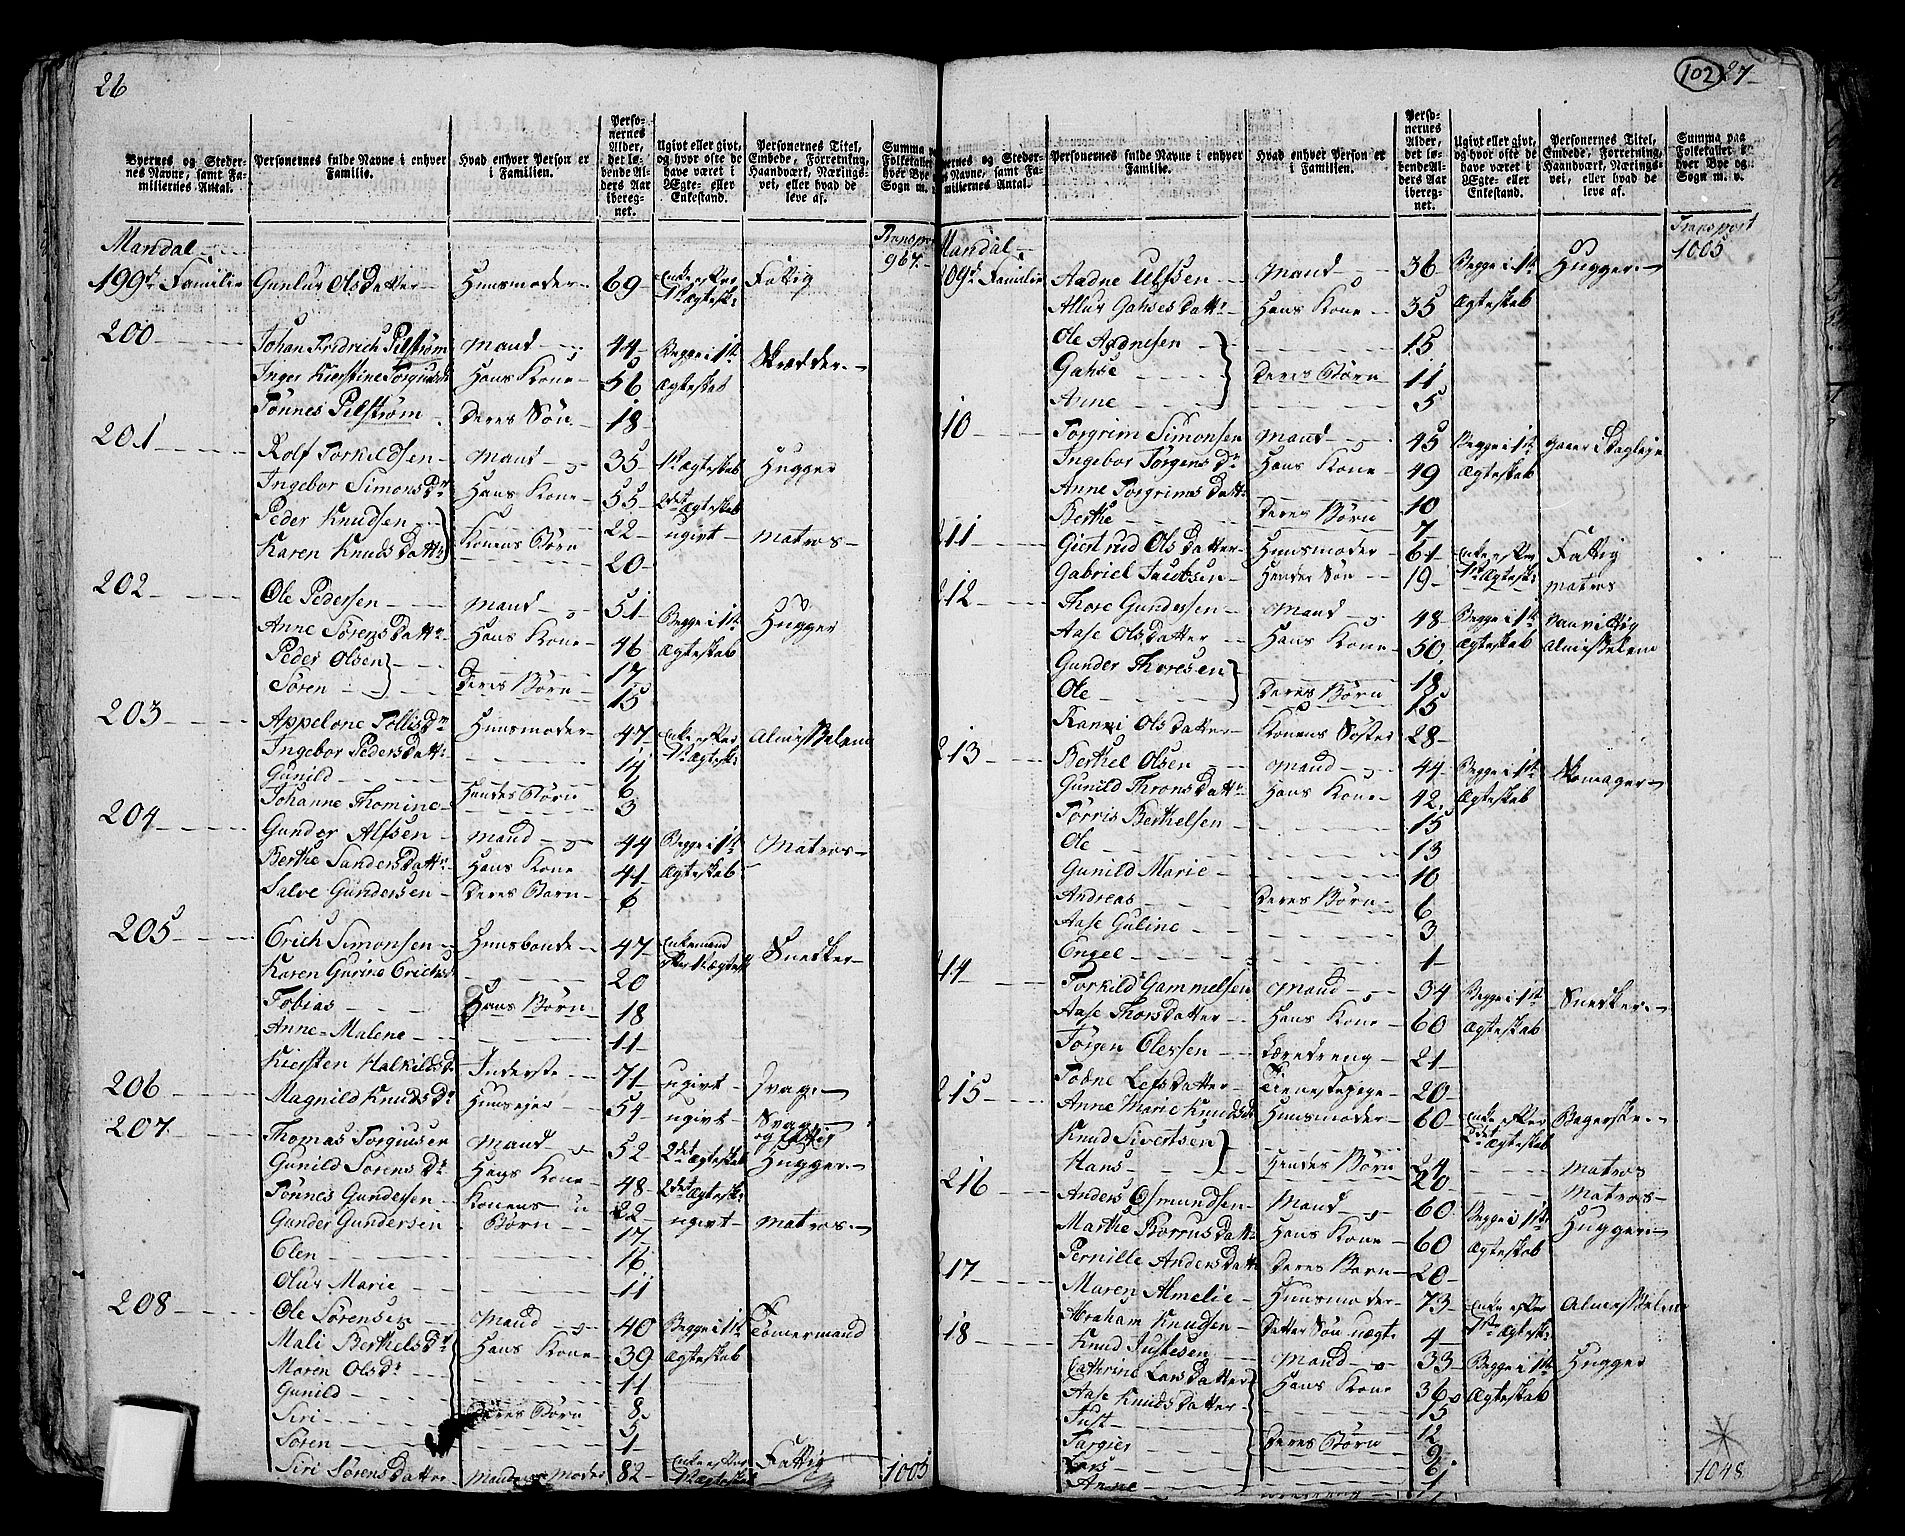 26
Byernes og Steder-
nes Navne, samt Fa-
miliernes Antal.
Personernes fulde Navne i enhver
Familie.
Hvad enhver Person er
i Familien.
Perso-
nernes
Alder,
det lø-
bende Al-
ders Aar
ibereg-
net.
Ugivt eller givt,
og hvor ofte de
have været i
Ægte- eller
Enkestand.
Personernes Titel,
Embede, Forretning,
Haandværk, Nærings-
vei, eller hvad de
leve af.
Summa
Folketallet
hver Bye og
Sogn m. v.
Mandal Transport
967
199de Familie Gunlur Olsdatter Huusmoder 69 Enke efter 1te Ægtesk: Fattig
200 Johan Fredrich Pilstrøm Mand 44 Begge i 1te Skrædder
Inger Kirstine Torgiusd: Hans Kone 56 Ægteskab
Tönnes Pilstrøm Deres Søn 18
201 Rolf Torkildsen Mand 35 1te Ægteskab Hugger
Ingebor Simonsdr Hans Kone 55 2det Ægteskab
Peder Knudsen 22 ugivt Matros
Karen Knudsdattr Konens Børn 20
202 Ole Pedersen Mand 51 Begge i 1te Hugger
Anne Sørensdattr Hans Kone 46 Ægteskab
Peder Olsen 17
Søren Deres Børn 15
203 Appelone Tollisdr Huusmoder 47 Enke efter 1te Ægtesk: Almisselem
Ingebor Pedersdattr 14
Gunild 6
Johanne Thomine Hendes Børn 3
204 Gunder Alfsen Mand 44 Begge i 1te Matros
Berthe Sandersdattr Hans Kone 41 Ægteskab
Salve Gundersen Deres Barn 6
205 Erich Simonsen Huusbonde 47 Enkemand efter 1te Ægtesk Snedker
Karen Gurine Erichsd 20
Tobias Hans Børn 18
Anne Malene 11
Kiersten Halkilds D Inderste 71 ugivt Svag
206 Magnild Knudsdr Huusejer 54 ugivt Svag og fattig
207 Thomas Torgiusen Mand 52 2det Ægteskab Hugger
Gunild Sørensdr Hans Kone 48 2det Ægtesk:
Tönnes Gundersen Konens 22 ugivt Matros
Gunder Gundersen Børn 17
Elen 16
Olur Marie 11
208 Ole Sørensen Mand 40 Begge i 1te Tömermand
Mali Berthelsdr Hans Kone 39 Ægteskab
Maren Olsdr 11
Gunild 8
Siri Deres Børn 5
Søren 1
Siri Sørensdatter Mandens Moder 82 Enke efter 1te Ægteskab Fattig 1005
102 27
ernes og Steder-
es Navne, samt Fa-
miliernes Antal.
Personernes fulde Navne i enhver
Familie.
Hvad enhver Person er
i Familien.
Perso-
nernes
Alder,
det lø-
bende Al-
ders Aar
ibereg-
net.
Ugivt eller givt,
og hvor ofte de
have været i
Ægte- eller
Enkestand.
Personernes Titel,
Embede, Forretning,
Haandværk, Nærings-
vei, eller hvad de
leve af.
Summa paa
Folketallet i
hver Bye og
Sogn m. v.
Mandal Transport
1005
209de Familie Aadne Ulfsen Mand 36 Begge i 1te Hugger
Allur Gahsesdattr Hans Kone 35 Ægteskab
Ole Aadnesen 15
Gahse Deres Børn 11
Anne 5
210 Torgrim Simonsen Mand 45 Begge i 1te
Ingebor Jørgensdr Hans Kone 49 Ægteskab
Anne Torgrimsdattr 10
Berthe Deres Børn 7
211 Giertrud Olsdatter Huusmoder 61 Enke efter 1te Ægtesk: Fattig
Gabriel Jacobsen Hendes Søn 19 Matros
212 Thore Gundersen Mand 48 Begge i 1te Vanvittig
Aase Olsdatter Hans Kone 50 Ægteskab Almisselem
Gunder Thoresen 18
Ole Deres Børn 15
Ranni Olsdatter Konens Søster 28
213 Berthel Olsen Mand 44 Begge i 1te Skomager
Gunild Thronsdattr Hans Kone 42 Ægteskab
Törris Berthelsen 15
Ole 13
Gunild Marie 10
Andreas Deres Børn 6
Aase Guline 3
Engel 1
214 Torkild Gammelsen Mand 34 Begge i 1te Snedker
Aase Thorsdatter Hans Kone 60 Ægteskab
Jørgen Olessen Læredreng 21
Tobne Lefsdatter Tienestepige 20
215 Anne Marie Knudsd Huusmoder 60 Enke efter 2det Ægteskab Bagerske
Knud Sivertsen 24 Matros
Hans Hendes Børn 20 Matros
216 Anders Osmundsen Mand 60 Begge i 1te Hugger
Marthe Borrusdattr Hans Kone 60 Ægteskab
Pernille Andersdattr Deres Barn 20
217 Maren Amelie Huusmoder 73 Enke efter 1te Ægtesk: Almisselem
Abraham Knudsen Datter Søn uægte 4
218 Knud Justesen Mand 33 Begge i 1te Hugger
Cathrine Larsdatter Hans Kone 36 Ægteskab
Aase Knudsdatter 15
Just 12
Targier Deres Børn 9
Lars 6
Anne 1
1048